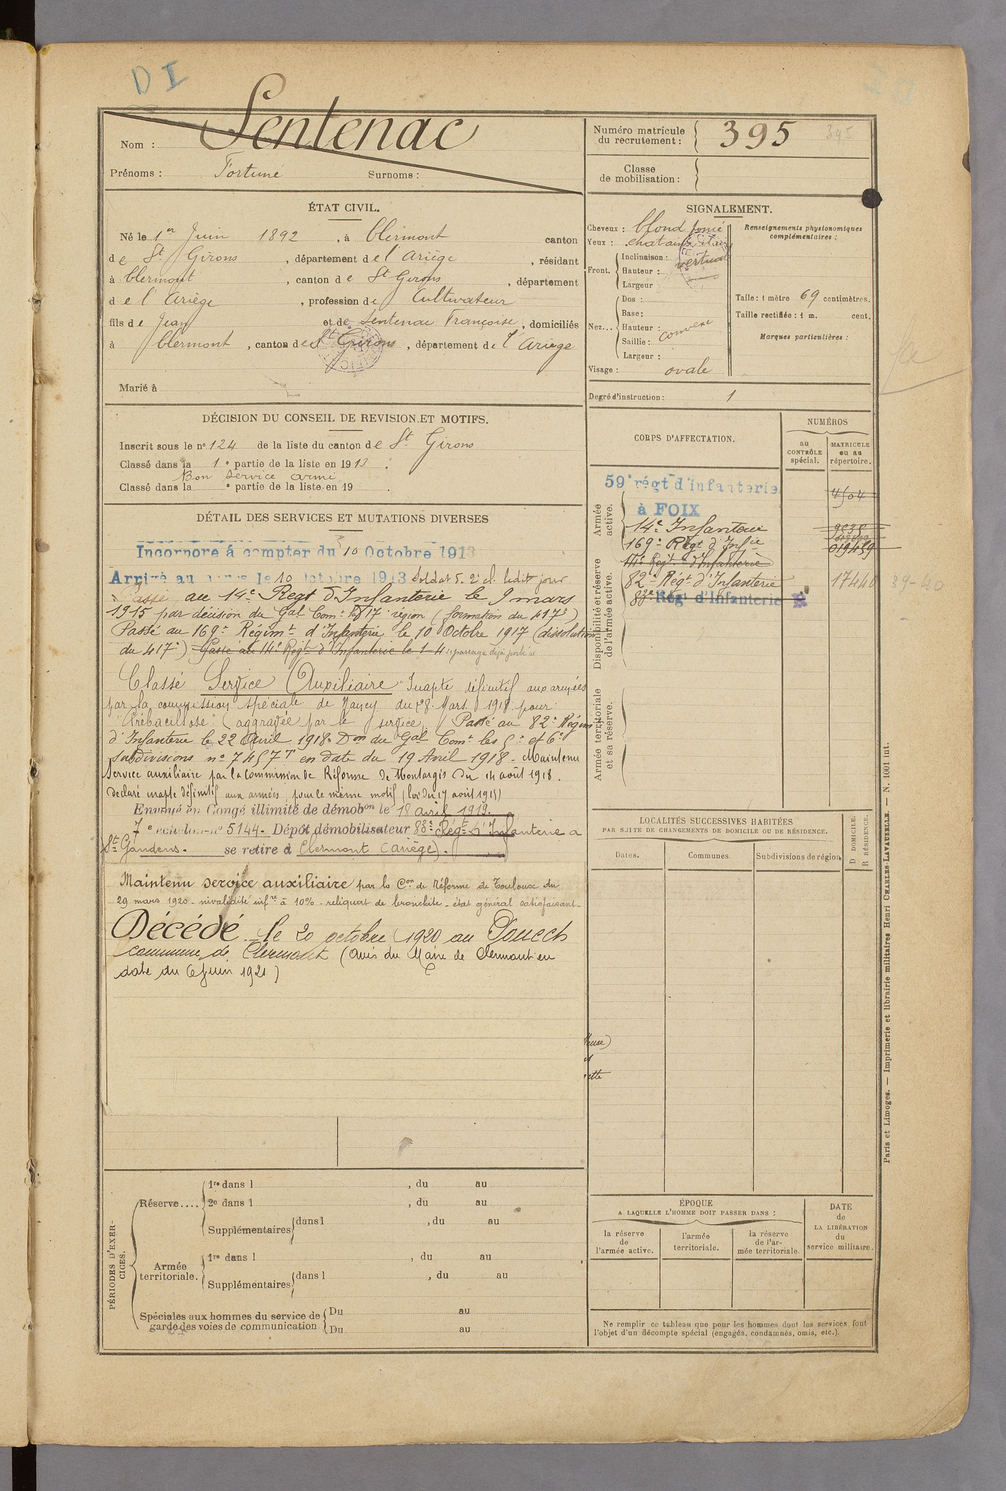 D I
Nom : Sentenac
Prénoms : Fortuné Surnoms :
Numéro matricule
du recrutement : 395
Classe
de mobilisation :
ÉTAT CIVIL.
Né le 1er Juin 1892, à Clermont canton
de St Girons, département de l'Ariège, résidant
à Clermont, canton de St Girons, département
de l'Ariège, profession de Cultivateur
fils de Jean et de Sentenac Françoise, domiciliés
à Clermont, canton de St Girons, département de l'Ariège
Marié à
SIGNALEMENT.
Cheveux : blond foncé
Yeux : chatain clair
Front. Inclinaison : vertical
Hauteur :
Largeur
Nez... Dos :
Base :
Hauteur :
Saillie : convexe
Largeur :
Visage : ovale
Renseignements physionomiques
complémentaires :
Taille : 1 mètre 69 centimètres.
Taille rectifiée : 1 m. cent.
Marques particulières :
Degré d'instruction : 1
DÉCISION DU CONSEIL DE REVISION ET MOTIFS.
Inscrit sous le no 124 de la liste du canton de St Girons
Classé dans la 1e partie de la liste en 1913.
Bon service armé
Classé dans la e partie de la liste en 19
DÉTAIL DES SERVICES ET MUTATIONS DIVERSES
Incorporé à compter du 10 Octobre 1913
Arrivé au corps le 10 octobre 1913 soldat de 2e cl. ledit jour
Passé au 14e Regt d'Infanterie le 9 mars
1915 par décision du Gal Comt la 17e région (formation du 417e)
Passé au 169e Régimt d'Infanterie le 10 Octobre 1917 (dissolution
du 417e) Passé au 14e Régt d'Infanterie le 1-4 passage déjà porté
Classé Service Auxiliaire Inapte définitif aux armées
par la commission spéciale de Nancy du 28 Mars 1918 pour
(aggravée par le service) Passé au 82e Régimt
d'Infanterie le 22 Avril 1918. Don du Gal Comt les 5e et 6e
subdivisions no 7457 T en date du 19 Avril 1918. Maintenu
Service auxiliaire par la Commission de Réforme de Montargis du 14 août 1918.
Déclaré inapte définitif aux armées pour le même motif (loi du 17 août 1915)
Envoyé en Congé illimité de démobon le 18 avril 1919.
7e échelon no 5144. Dépôt démobilisateur 83e Régt d'Infanterie à
St Gaudens. se retire à Clermont (Ariège).
Maintenu service auxiliaire par la Con de Réforme de Toulouse du
29 mars 1920 - invalidité infre à 10% - reliquat de bronchite - état général satisfaisant.
Décédé le 20 octobre 1920 au Pouech
commune de Clermont (avis du Maire de Clermont en
date du 6 juin 1921)
CORPS D'AFFECTATION.
NUMÉROS
au
CONTRÔLE
spécial.
MATRICULE
ou au
répertoire.
Armée
active.
59e régt d'infanterie 4504
à FOIX
14e Infanterie
169e Regt d'Infie 019459
Disponibilité et réserve
de l'armée active.
14e Régt d'Infanterie
82e Régt d'Infanterie 17440 39-40
83e Régt d'Infanterie
Armée territoriale
et sa réserve.
LOCALITÉS SUCCESSIVES HABITÉES
PAR SUITE DE CHANGEMENTS DE DOMICILE OU DE RÉSIDENCE.
Dates. Communes. Subdivisions de région.
D DOMICILE.
R RÉSIDENCE.
PÉRIODES D'EXERCICES.
Réserve.... 1re dans l , du au
2e dans l , du au
Supplémentaires dans l , du au
Armée
territoriale. 1re dans l , du au
Supplémentaires dans l , du au
Spéciales aux hommes du service de
garde des voies de communication Du au
Du au
ÉPOQUE
A LAQUELLE L'HOMME DOIT PASSER DANS :
la réserve
de
l'armée active.
l'armée
territoriale.
la réserve
de l'ar-
mée territoriale.
DATE
de
LA LIBÉRATION
du
service militaire.
Ne remplir ce tableau que pour les hommes dont les services font
l'objet d'un décompte spécial (engagés, condamnés, omis, etc.).
Paris et Limoges. — Imprimerie et librairie militaires Henri CHARLES-LAVAUZELLE. — N. 1001 int.